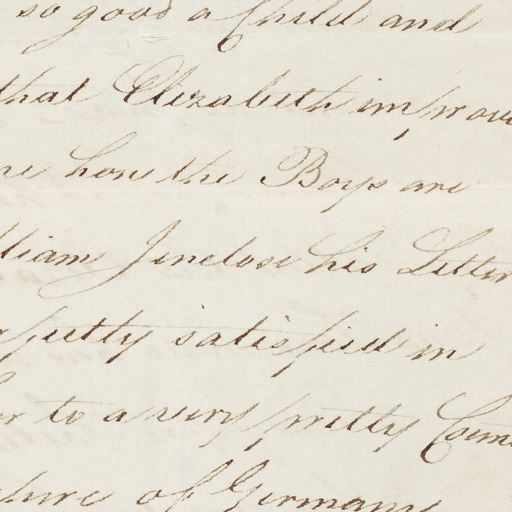 so good a Child and
that Elizabeth improve
me how the Boys are
lliam I enclose his Letter
rfectly satisfied in
to a very pretty Coun
ture of Germany